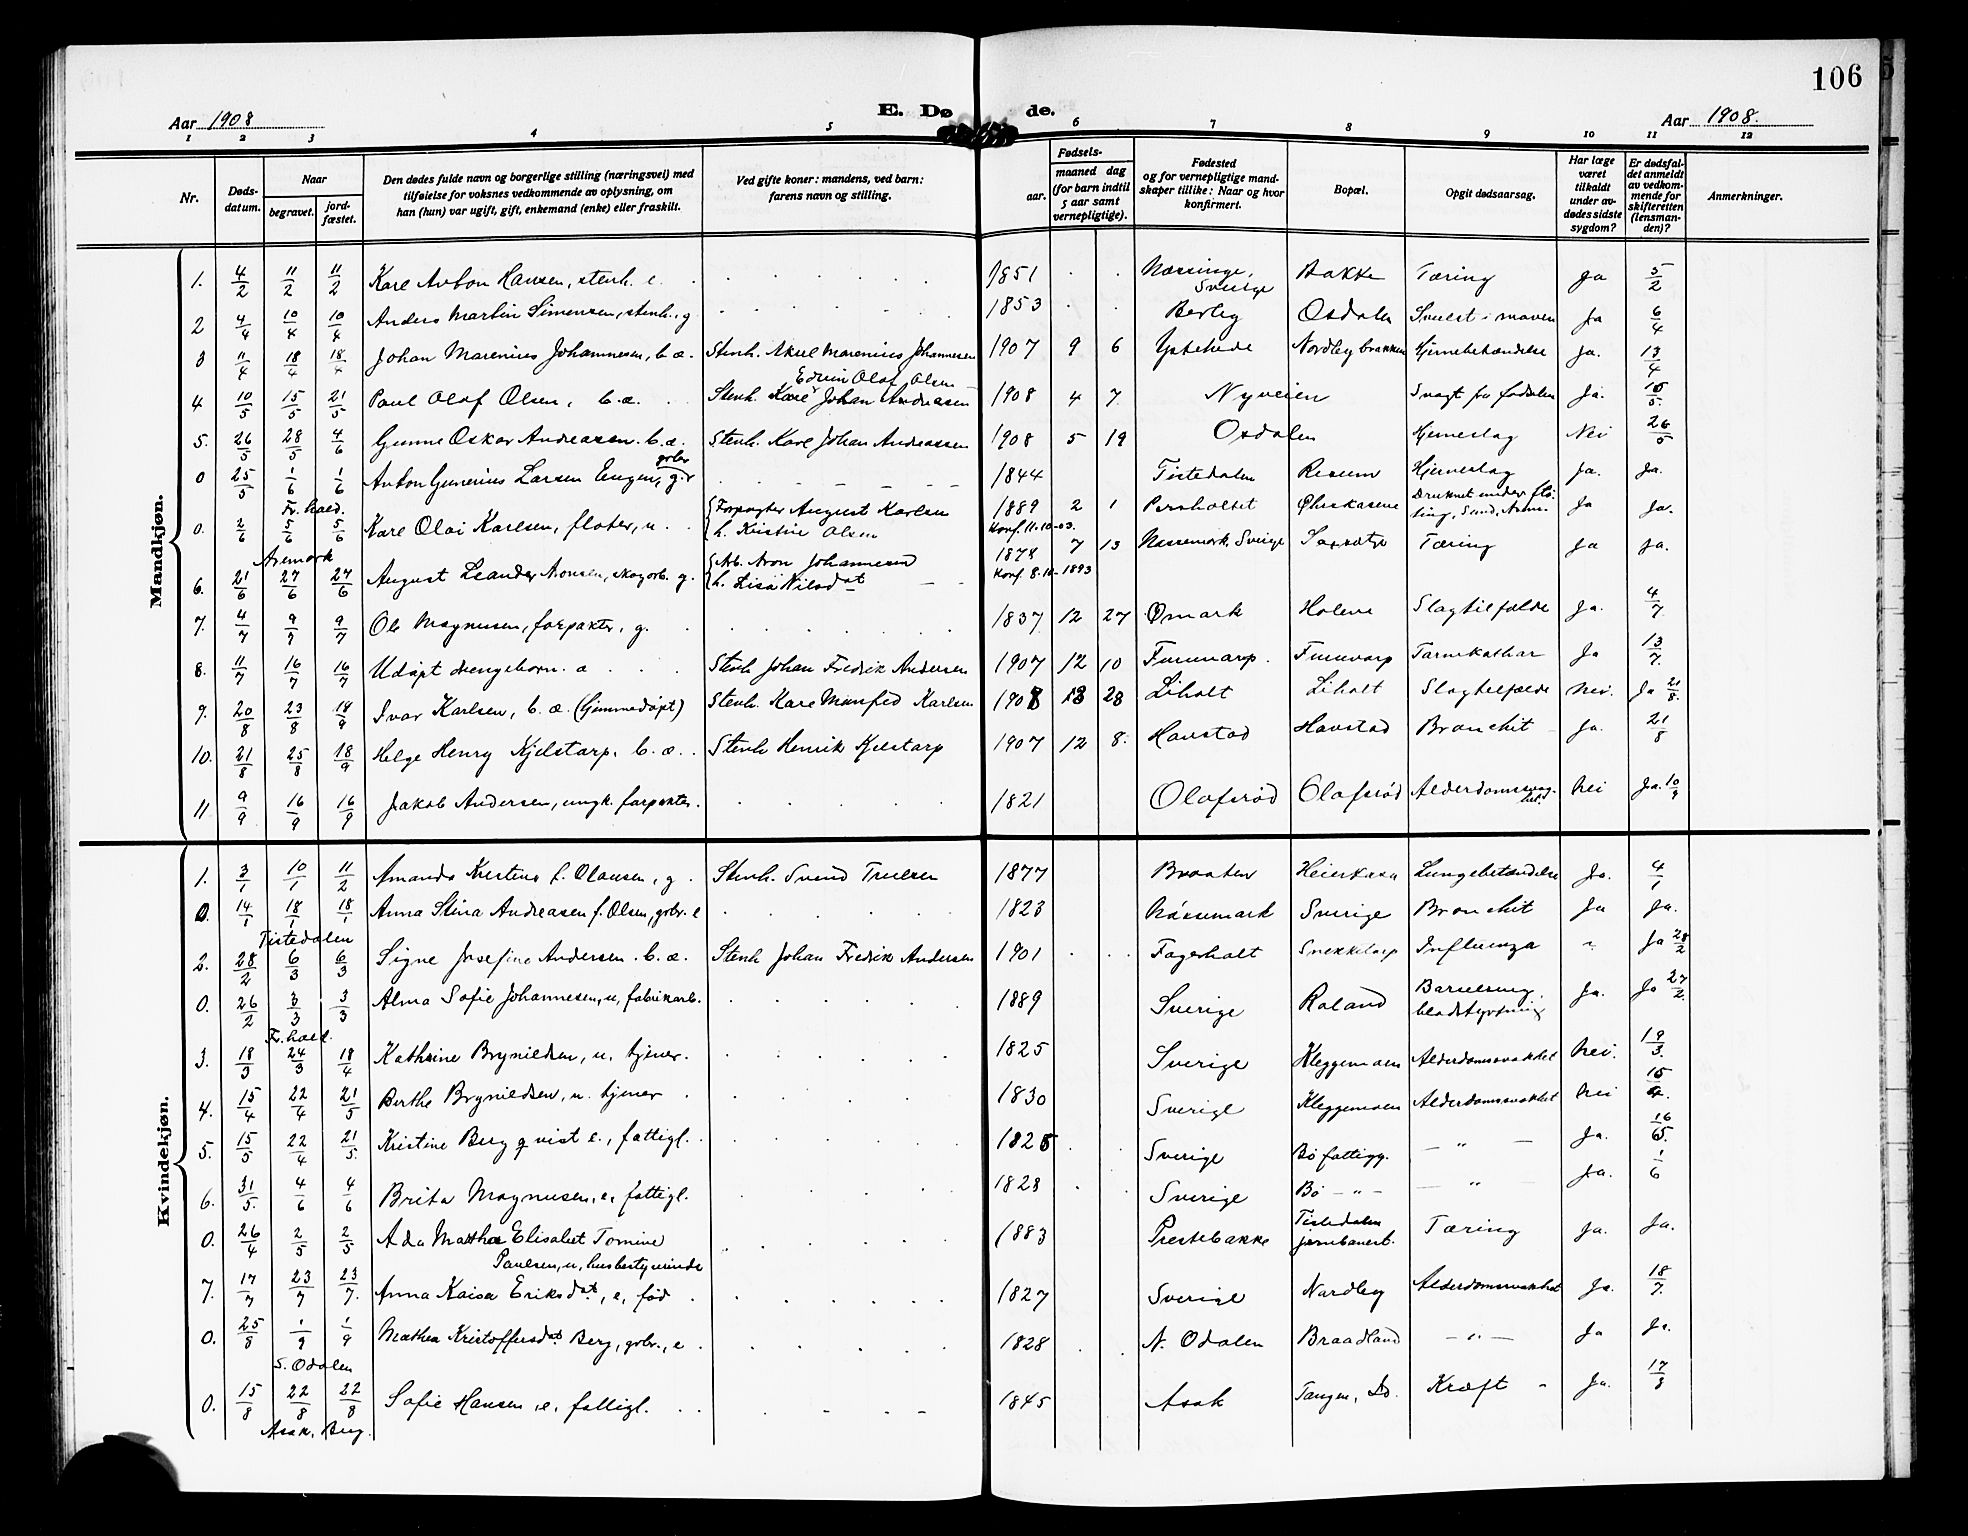 106
E. Døde.
Aar 1908
Aar 1908.
1 2 3 4 5 6 7 8 9 10 11 12
Nr.
Døds-
datum.
Naar
begravet.
jord-
fæstet.
Den dødes fulde navn og borgerlige stilling (næringsvei) med
tilføielse for voksnes vedkommende av oplysning, om
han (hun) var ugift, gift, enkemand (enke) eller fraskilt.
Ved gifte koner: mandens, ved barn:
farens navn og stilling.
Fødsels-
aar.
maaned dag
(for barn indtil
5 aar samt
vernepligtige).
Fødested
og for vernepligtige mand-
skaper tillike: Naar og hvor
konfirmert.
Bopæl.
Opgit dødsaarsag.
Har læge
været
tilkaldt
under av-
dødes sidste
sygdom?
Er dødsfal-
det anmeldt
av vedkom-
mende for
skifteretten
(lensman-
den)?
Anmerkninger.
Mandkjøn.
1. 4/2 11/2 11/2 Karl Anton Hansen, stenh. e. 1851 Næssinge, Sverige Bakke Tæring Ja 5/2
2 4/4 10/4 10/4 Anders Martin Simensen, stenh., g 1853 Berby Osdalen Svulst i maven Ja 6/4
3 11/4 18/4 18/4 Johan Marenius Johannesen, b. æ. Stenh. Aksel Marenius Johannesen 1907 9 6 Ystehede Nordbybrakken Hjernebetændelse Ja. 13/4
Edvin Olaf Olsen
4 10/5 15/5 21/5 Paul Olaf Olsen, b. æ. Stenh. Karl Johan Andreasen 1908 4 7 Nyveien Svagt fra fødselen Ja. 15/5.
5. 26/5 28/5 4/6 Gunne Oskar Andreasen. b. æ. Stenh. Karl Johan Andreassen 1908 5 19 Osdalen Hjerneslag Nei 26/5
0 25/5 1/6 1/6 Anton Gunerius Larsen Eugen, grbr g. 1844 Tistedalen Risum Hjerneslag Ja. Ja.
Fr.hald.
0. 2/6 5/6 5/6 Karl Olai Karlsen, fløter, u. Forpagter August Karlsen 1889 2 1 Persholtet Druknet under flø- Ja Ja.
h. Kristine Olsen Konf. 11.10-03.
Aremark
6. 21/6 27/6 27/6 August Leander Aronsen, skogarb. g. Arb. Aron Johannesen 1878 7 13 Næssemark, Sverige Tæring Ja Ja.
h. Lisa Nilsdat Konf. 8.10-1893
7. 4/7 9/7 9/7 Ole Magnusen, forpakter, g. 1837 12 27 Ømark Holene Slagtilfælde Ja. 4/7
8. 11/7 16/7 16/7 Udøpt drengebarn. æ Stenh Johan Fredrik Andersen 1907 12 10 Ja 13/7.
9. 20/8 23/8 18/9 Ivar Karlsen, b. æ. (hjemmedøpt) Stenh. Karl Manfred Karlsen 1908 28 Liholt Liholt Slagtilfælde Nei. Ja 21/8.
10. 21/8 25/8 18/9 Helge Henry Kjelstarp. b. æ. Stenh Henrik Kjelstarp 1907 12 8. Havstad Havstad Bronchit Ja. 21/8
11 9/9 16/9 16/9 Jakob Andersen, ungk. forpakter. 1821 Olafsrød Olafsrød Alderdomssvag- Nei Ja. 10/9
het.
Kvindekjøn.
1. 3/1 10/1 11/2 Amanda Kristine f. Olausen, g. Stenh. Svend Truelsen 1877 Braaten Heierkasa Lungebetændelse Ja. 4/1
0. 14/1 18/1 18/1 Anna Stina Andreasen f. Olsen, grbr. e 1823 Næssemark Sverige Bronchit Ja Ja.
Tistedalen
2. 28/2 6/3 6/3 Signe Josefine Andersen. b. æ. Stenh Johan Fredrik Andersen 1901 Fagerholt Snekketorp Influenza " Ja 28/2
0. 26/2 3/3 3/3 Alma Sofie Johannesen, u, fabrikarb. 1889 Sverige Roland Barselseng, Ja. Ja 27/2.
blodstyrtning
Fr.hald.
3. 18/3 24/3 18/4 Kathrine Brynildsen, u. tjener. 1825 Sverige Kleggemoen Alderdomssvakhet Nei. 19/3.
4. 15/4 22/4 21/5 Berthe Brynildsen, u. tjener 1830 Sverige Kleggemoen Alderdomssvakhet Nei 15/4.
5. 15/5 22/4 21/5. Kristine Bergqvist e., fattigl. Sverige Bø fattigg. — " — Ja. 16/5.
6. 31/5. 4/6 4/6 Brita Magnusen, e, fattigl. 1828 Sverige Bø — " — — " — Ja. 1/6
0. 26/4 2/5 2/5 Ada Mathea Elisabet Tomine 1883 Prestebakke Tistedalen Tæring Ja. Ja.
Paulsen, u, husbestyrerinde jernbanest.
7. 17/7 23/7 23/7. Anna Kaisa Eriksdat, e, fød 1827 Sverige Nordby Alderdomssvakhet Ja. 18/7.
0. 25/8 1/9 1/9 Mathea Kristoffersdat Berg, grbr., e 1828 N. Odalen Braadland — " — Ja Ja.
S. Odalen
0. 15/8 22/8 22/8 Sofie Hansen, e, fattigl. 1845 Asak Tangen, Id. Kræft Ja. 17/8
Asak, Berg.